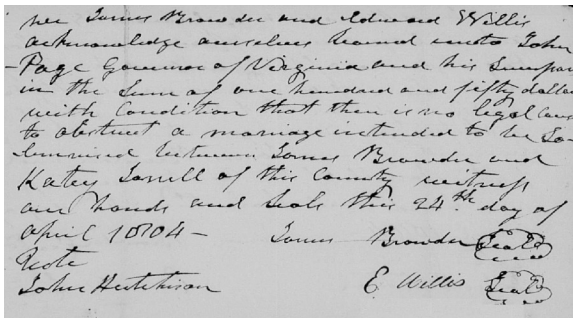 we James Browder and Edward Willis
acknowledge ourselves bound unto John
Page Governor of Virginia and his
in the Sum of one hundred and fifty dollars
with Condition that there is no legal cause
to obstruct a marriage intended to be So-
lemnised between James Browder and
Katey of this County witness
our hands and Seals this 24th day of
april 1804 - James Browder Seal
John Hutchison E. Willis Seal